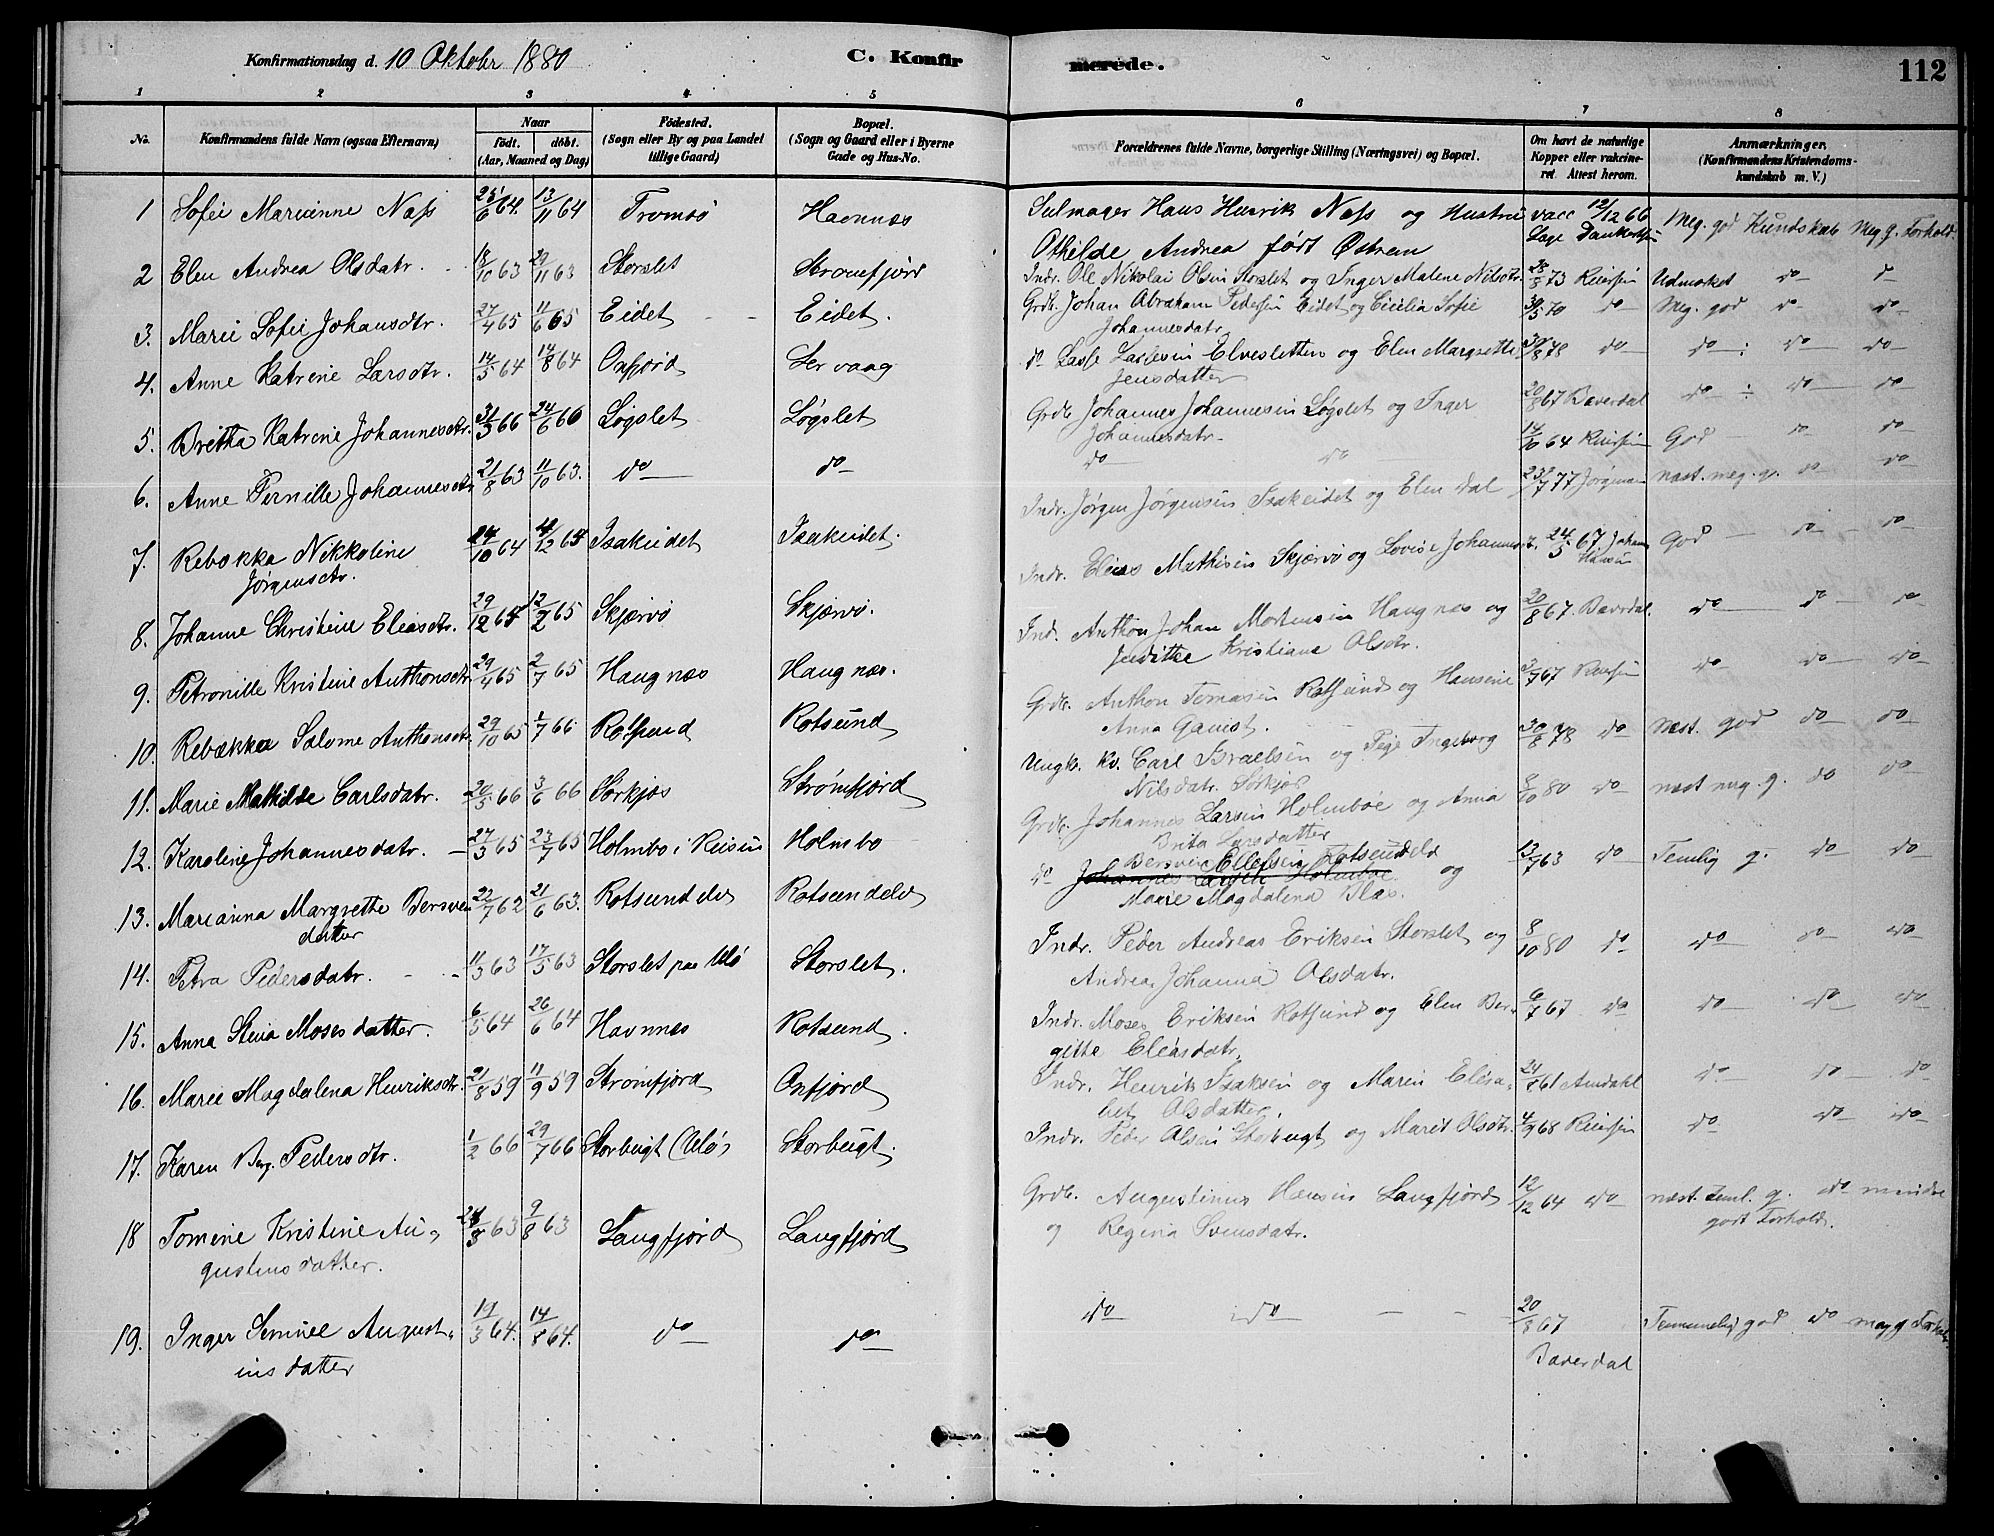 Konfirmationsdag d. 10 Oktobr 1880 C. Konfirmerede. 112
1 2 3 4 5 6 7 8
No. Konfirmandens fulde Navn (ogsaa Efternavn) Naar født. døbt. (Aar, Maaned og Dag) Fødested. (Sogn eller By og paa Landet tillige Gaard) Bopæl. (Sogn og Gaard eller i Byerne Gade og Hus-No. Forældrenes fulde Navne, borgerlige Stilling (Næringsvei) og Bopæl. Om havt de naturlige Kopper eller vakcineret. Attest herom. Anmærkninger. (Konfirmandens Kristendomskundskab m. V.)
1 Sofie Marianne Næss 25/6 64. 13/11 64 Tromsö Havnnæs Selmager Hans Henrik Næss og Hustru vacc 12/12 66 Meg. god Kundskab Meg g. Forhold
Othilde Andrea født Østrem
2 Elen Andrea Olsdatr. 18/10 63 29/11 63 Storslet Strømfjord Indr. Ole Nikolai Olsen Storslet og Inger Malene Nilsdtr. 28/8 73 Reiersen Udmærket do do
3. Marie Sofie Johansdtr. 27/4 65 11/6 65 Eidet Eidet. Grdb. Johan Abraham Pedersen Eidet og Cicilia Sofie 30/5 70 do Meg. god do do
Johannesdatr.
4. Anne Katrine Larsdtr. 14/5 64 14/8 64 Oxfjord Servaag do Lasse Lassesen Elvesletten og Elen Margrethe 30/8 78 do do do do
Jensdatter
5. Brettha Katrine Johannesdtr. 31/3 66 24/6 66 Løgslet Løgslet Grdb. Johannes Johannesen Løgslet og Inger 20/8 67 Baverdal do do do
Johannesdatr.
6. Anne Pernille Johannesdtr. 21/8 63 11/10 63. do do do do 14/10 64 Reiersen God do do
7. Rebekka Nikkoline 24/10 64 4/12 64 Isakeidet Isakeidet. Indr. Jørgen Jørgensen Isakeidet og Elen Dal 23/7 77 Jørgensen næst. meg. g. do do
Jørgensdtr.
8. Johanne Christine Eleasdtr. 29/12 64 12/2 65 Skjærvø Skjærvø. Indr. Eleas Mathisen Skjærvø og Lovise Johannesdtr. 24/5 67 Johan Hansen God do do
9. Petronille Kristine Anthonsdtr. 29/4 65 2/7 65 Haugnæs Haugnæs. Indr. Anthon Johan Mortensen Haugnæs og 20/8 67. Baverdal. do do do
Judithe Kristiane Olsdtr.
10. Rebækka Salome Anthonsdtr. 29/10 65 1/7 66 Rotsund Rotsund Grdb. Anthon Tomasen Rotsund og Hansine 2/7 67 Reiersen do do do
Anna Gamst.
11. Marie Mathilde Carlsdatr. 20/5 66 3/6 66 Sørkjos Strømfjord Ungk. Kv. Carl Israelsen og Pige Ingeborg 30/8 78 do næst. god do do
Nilsdatr. Sørkjos
12. Karoline Johannesdatr. 27/3 65 23/7 65 Holmbo i Reisen Holmbo Grdb. Johannes Larsen Holmboe og Anna 8/10 80 do næst meg. g. do do
Brita Larsdatter
13. Marianna Margrethe Bersven 22/7 62 21/6 63. Rotsundelv Rotsundelv do Bersven Ellefsen Rotsundelv og 13/7 63 do Temlig g. do do
datter Johannes Larsen Holmboe
Marie Magdalena Blax.
14. Petra Pedersdatr. 11/3 63 17/5 63 Storslet paa Ulø Storslet. Indr. Peder Andreas Eriksen Storslet og 8/10 80 do do do do
Andrea Johanna Olsdatr.
15. Anna Stina Mosesdatter. 6/5 64 26/6 64 Havnnæs Rotsund Indr. Moses Eriksen Rotsund og Elen Ber- 6/7 67 do do do do
gitte Eleasdatr.
16. Marie Magdalena Henriksdtr. 21/8 59 11/9 59 Strømfjord Oxfjord Indr. Henrik Isaksen og Maren Elisa- 24/8 61 Aundahl do do do
bet Olsdatter.
17. Karen Berg. Pedersdtr. 1/2 66 29/7 66 Storbugt (Ulø) Storbugt. Indr. Peder Olsen Storbugt og Marit Olsdtr. 4/9 68 Reiersen do do do
18 Tomine Kristine Au- 24/3 63 9/8 63 Langfjord Langfjord Grdb. Augustinus Hansen Langfjord 12/12 64 do næst. teml. g. do mindre
gustinsdatter. og Regina Svensdatr. godt Forhold.
19. Inger Semine August- 19/3 64. 14/8 64. do do do do 20/8 67 Temmelig god do meg g Forhold
insdatter Baverdal